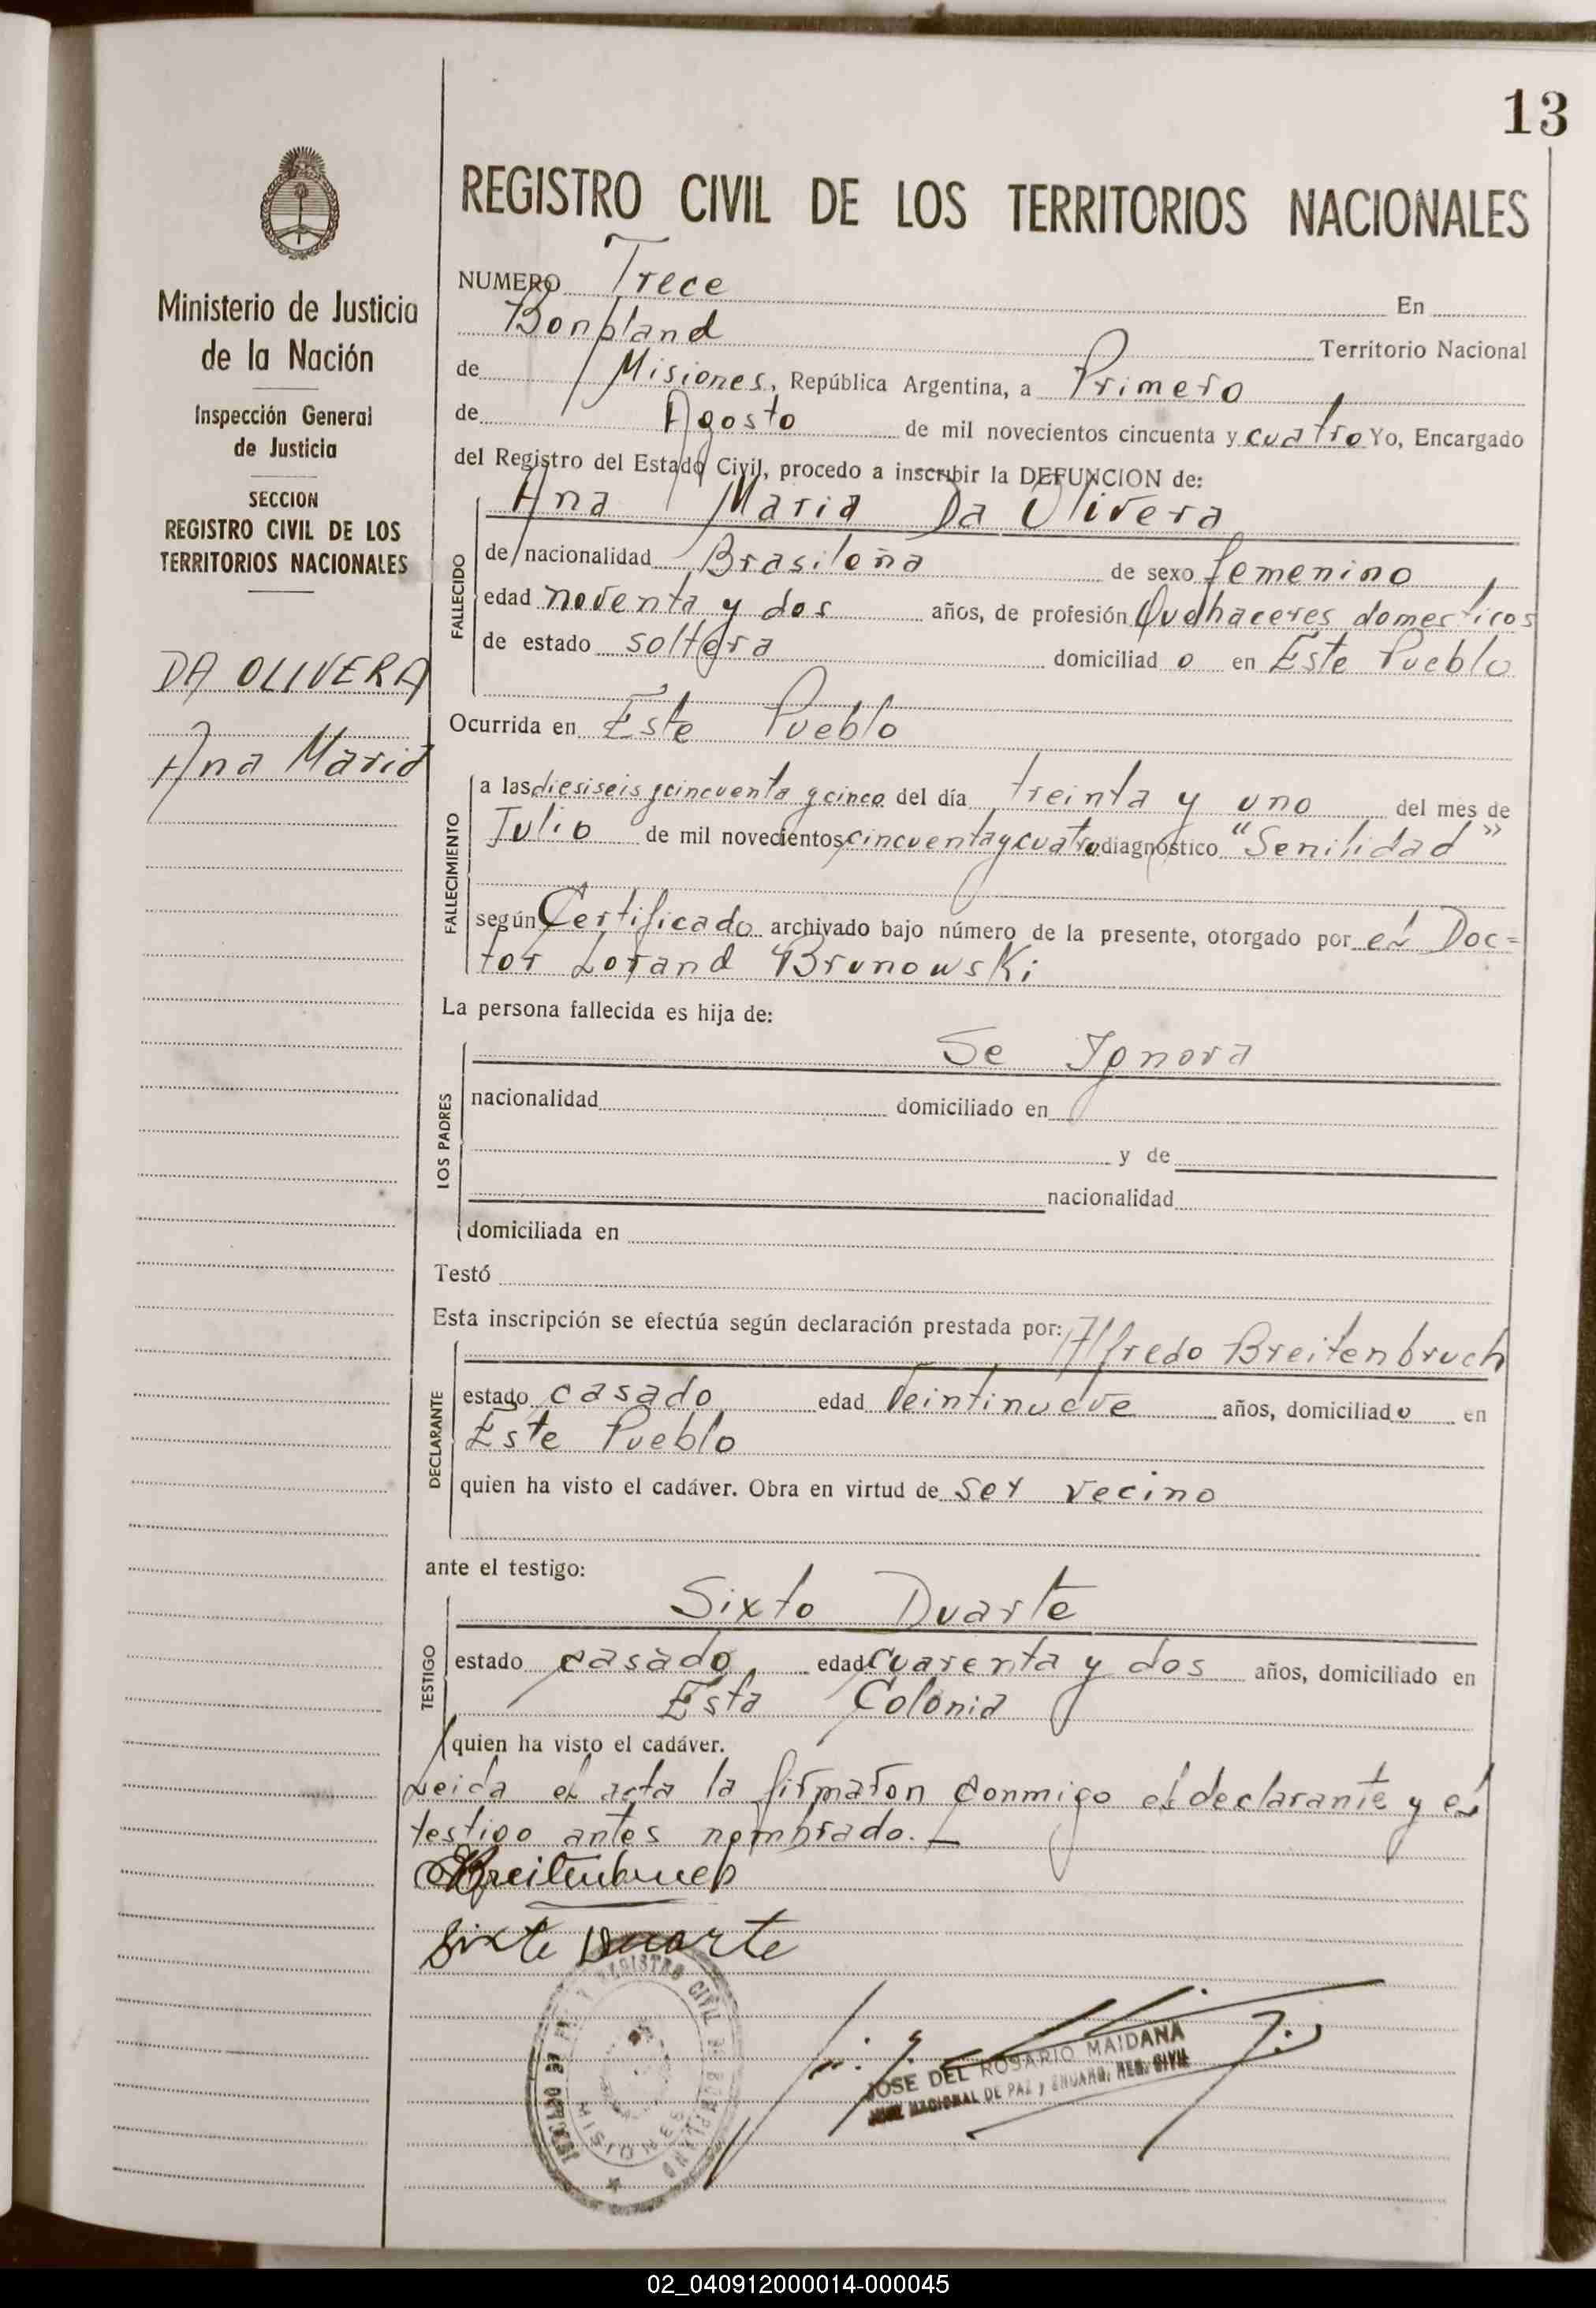 13
REGISTRO CIVIL DE LOS TERRITORIOS NACIONALES
Ministerio de Justicia
de la Nación
Inspección General
de Justicia
SECCION
REGISTRO CIVIL DE LOS
TERRITORIOS NACIONALES
DA OLIVERA
Ana Maria
NUMERO Trece En
Bonpland Territorio Nacional
de Misiones, República Argentina, a Primero
de Agosto de mil novecientos cincuenta y cuatro Yo, Encargado
del Registro del Estado Civil, procedo a inscribir la DEFUNCION de:
FALLECIDO
Ana Maria Da Olivera
de nacionalidad Brasileña de sexo femenino
edad noventa y dos años, de profesión Quehaceres domesticos
de estado soltera domiciliad o en Este Pueblo
Ocurrida en Este Pueblo
FALLECIMIENTO
a las diesiseis y cincuenta y cinco del día treinta y uno del mes de
Julio de mil novecientos cincuenta y cuatro diagnóstico "Senilidad"
según Certificado archivado bajo número de la presente, otorgado por el Doc=
tor Lorand Brunowski
La persona fallecida es hija de:
LOS PADRES
Se Ignora
nacionalidad domiciliado en
y de
nacionalidad
domiciliada en
Testó
Esta inscripción se efectúa según declaración prestada por:
DECLARANTE
Alfredo Breitenbruch
estado casado edad Veintinueve años, domiciliado en
Este Pueblo
quien ha visto el cadáver. Obra en virtud de ser vecino
ante el testigo:
TESTIGO
Sixto Duarte
estado casado edad cuarenta y dos años, domiciliado en
Esta Colonia
quien ha visto el cadáver.
Leida el acta la firmaron conmigo el declarante y el
testigo antes nombrado.—
ABreitenbruch
Sixto Duarte
REGISTRO CIVIL
MISIONES
JOSE DEL ROSARIO MAIDANA
JUEZ NACIONAL DE PAZ y ENCARG. REG. CIVIL
02_040912000014-000045